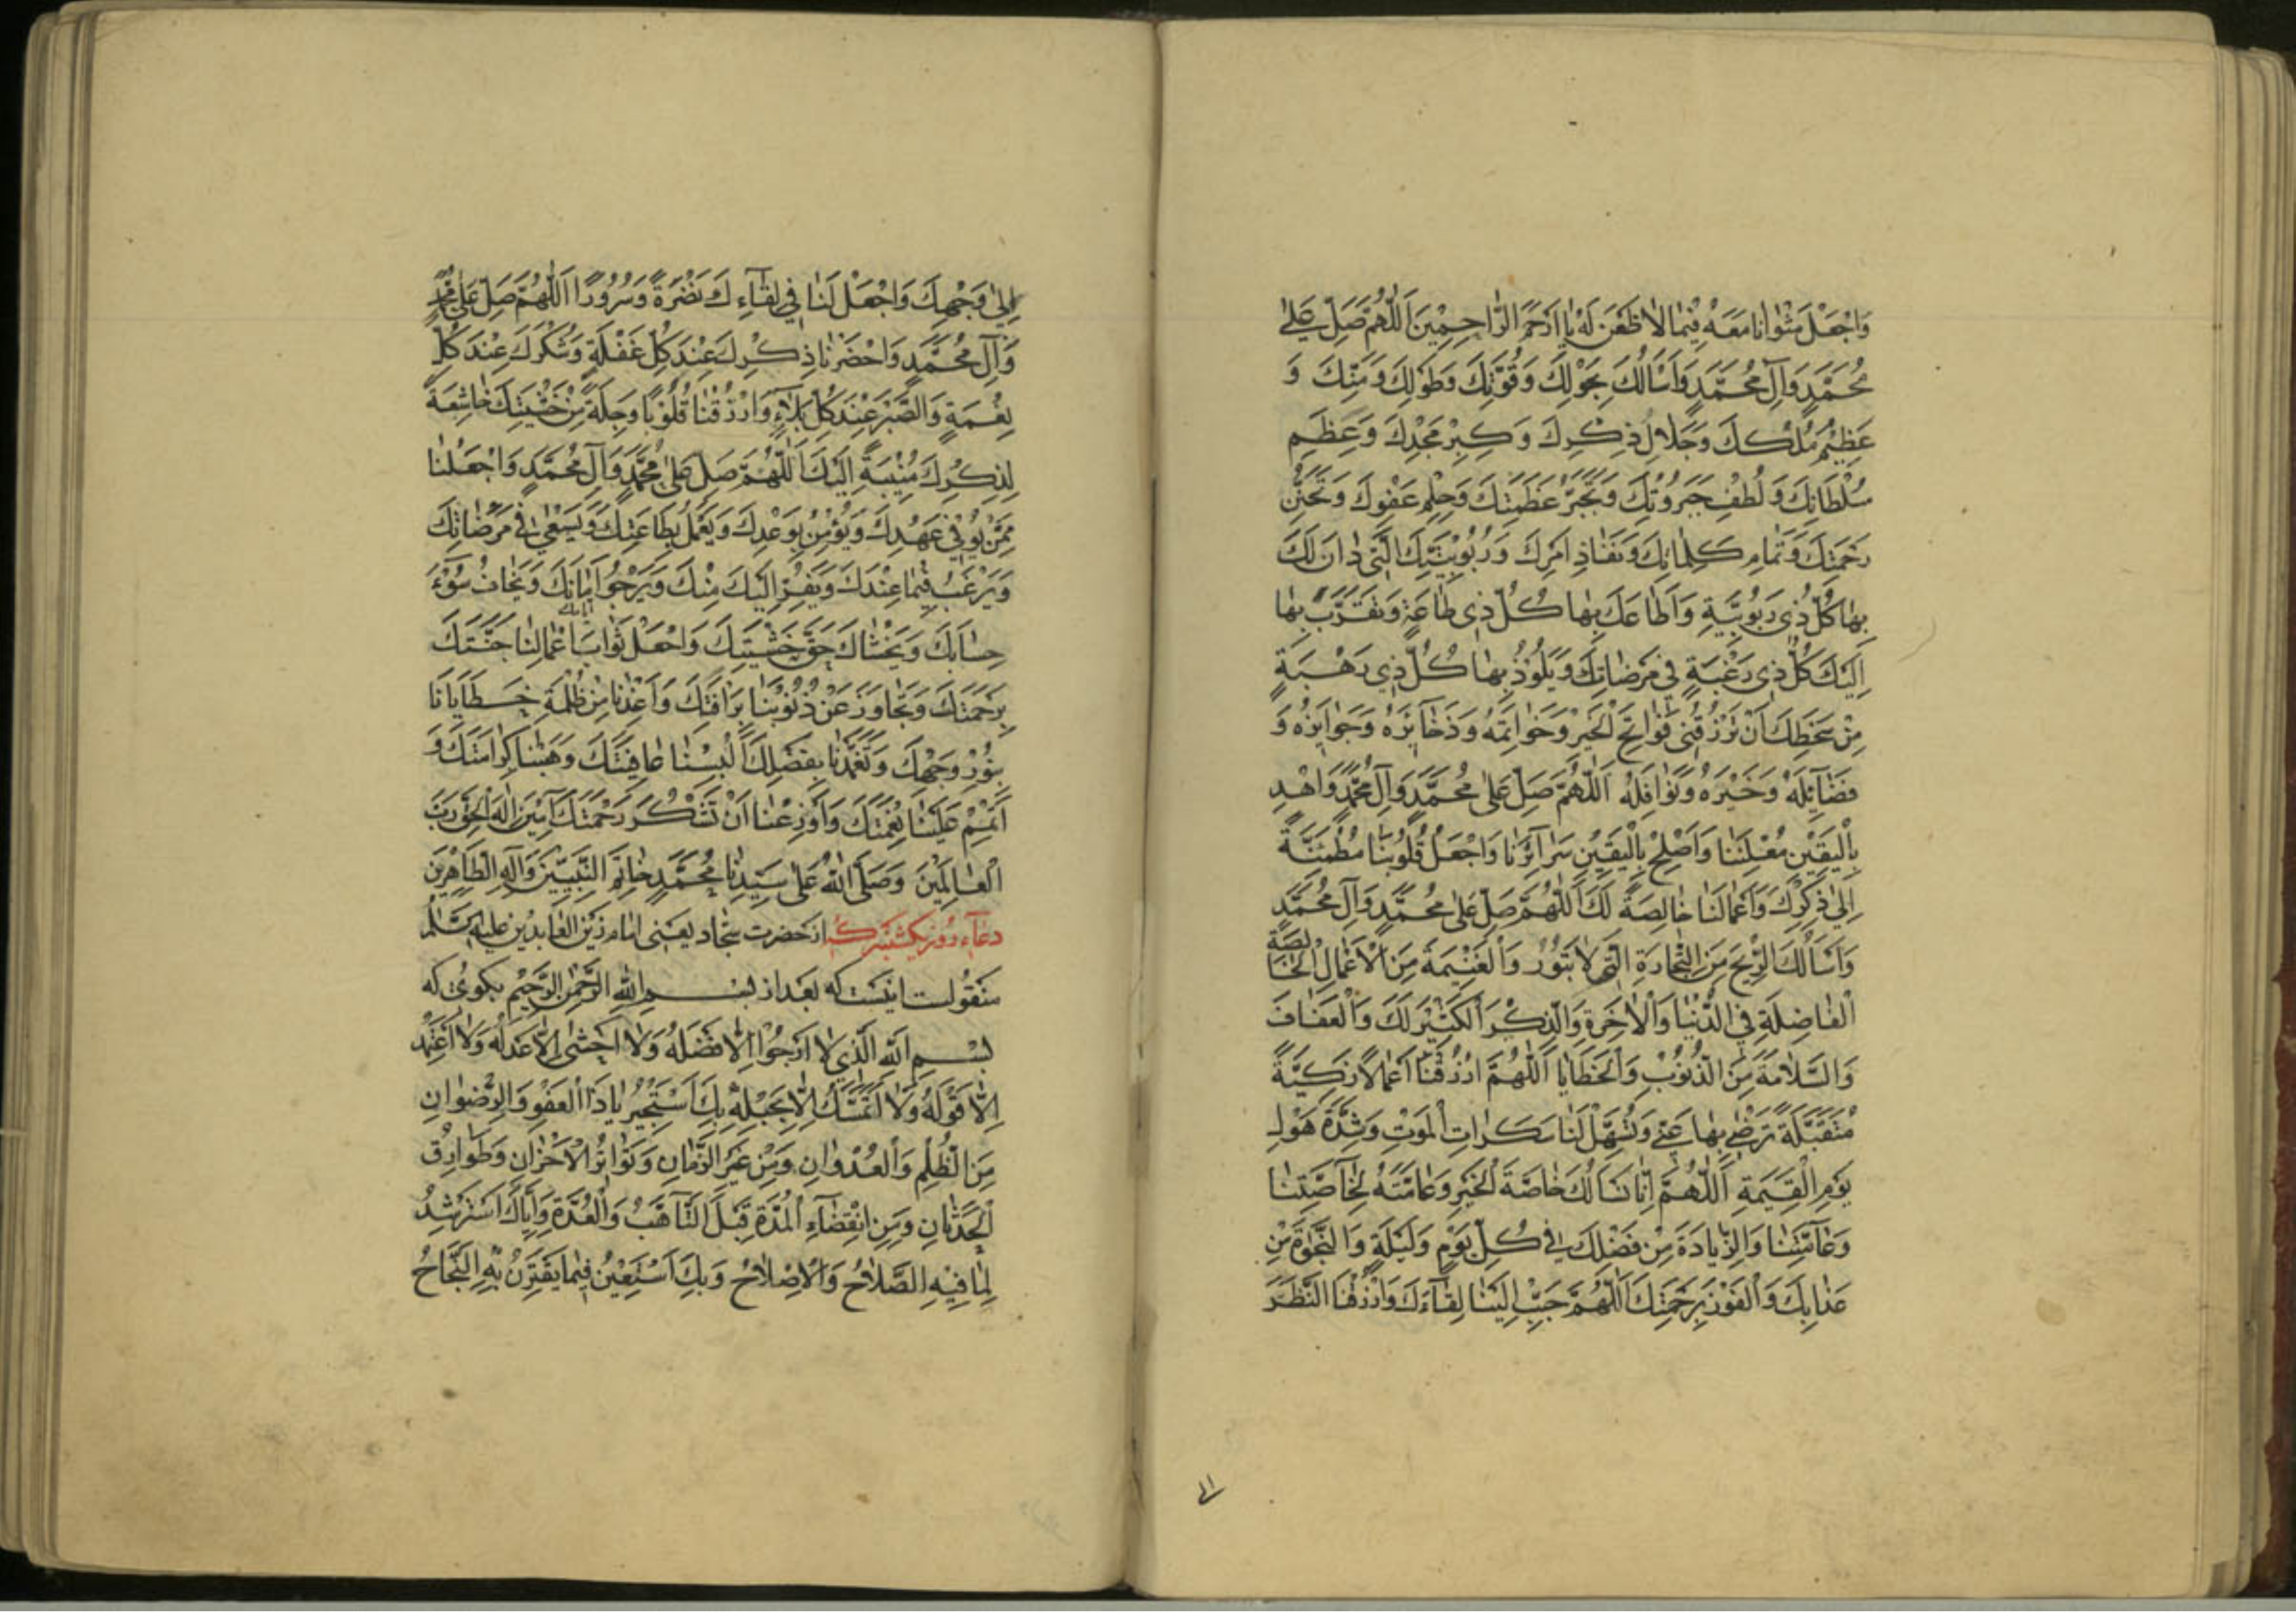 وَاجْعَلْ مَثْوَانَا مَعَهُ فِيمَا لَا ظَعَنَ لَهُ يَا اَرْحَمَ الرَّاحِمِيْنَ اَللّٰهُمَّ صَلِّ عَلٰى
مُحَمَّدٍ وَآلِ مُحَمَّدٍ وَاَسْأَلُكَ بِحَوْلِكَ وَقُوَّتِكَ وَطَوْلِكَ وَمَنِّكَ وَ
عَظِيْمِ مُلْكِكَ وَجَلَالِ ذِكْرِكَ وَكِبْرِ مَجْدِكَ وَعِظَمِ
سُلْطَانِكَ وَلُطْفِ جَبَرُوْتِكَ وَتَجَبُّرِ عَظَمَتِكَ وَحِلْمِ عَفْوِكَ وَتَحَنُّنِ
رَحْمَتِكَ وَتَمَامِ كَلِمَاتِكَ وَنَفَاذِ اَمْرِكَ وَرُبُوْبِيَّتِكَ الَّتِىْ دَانَ لَكَ
بِهَا كُلُّ ذِىْ رَبُوْبِيَّةٍ وَاَطَاعَكَ بِهَا كُلُّ ذِى طَاعَةٍ وَتَقَرَّبَ بِهَا
اِلَيْكَ كُلُّ ذِىْ رَغْبَةٍ فِيْ مَرْضَاتِكَ وَيَلُوْذُ بِهَا كُلُّ ذِي رَهْبَةٍ
مِنْ سَخَطِكَ اَنْ تَرْزُقَنِى فَوَاتِحَ الْخَيْرِ وَخَوَاتِمَهُ وَذَخَايِرَهُ وَجَوَايِزَهُ وَ
فَضَايِلَهُ وَخَيْرَهُ وَنَوَافِلَهُ اَللّٰهُمَّ صَلِّ عَلٰى مُحَمَّدٍ وَآلِ مُحَمَّدٍ وَاهْدِ
بِالْيَقِيْنِ مُعْلَنَنَا وَاَصْلِحْ بِالْيَقِيْنِ سَرَآئِرَنَا وَاجْعَلْ قُلُوْبَنَا مُطْمَئِنَّةً
اِلٰى ذِكْرِكَ وَاَعْمَالَنَا خَالِصَةً لَكَ اَللّٰهُمَّ صَلِّ عَلٰى مُحَمَّدٍ وَآلِ مُحَمَّدٍ
وَاَسْأَلُكَ الرِّبْحَ مِنَ التِّجَارَةِ الَّتِى لَا تَبُوْرُ وَالْغَنِيْمَةَ مِنَ الْاَعْمَالِ الْخَالِصَةِ
الْفَاضِلَةِ فِي الدُّنْيَا وَالْاٰخِرَةِ وَالذِّكْرَ الْكَثِيْرَ لَكَ وَالْعَفَافَ
وَالسَّلَامَةَ مِنَ الذُّنُوْبِ وَالْخَطَايَا اَللّٰهُمَّ ارْزُقْنَا اَعْمَالًا زَكِيَّةً
مُتَقَبَّلَةً تَرْضٰى بِهَا عَنِّى وَتُسَهِّلُ لَنَا سَكَرَاتِ الْمَوْتِ وَشِدَّةَ هَوْلِ
يَوْمِ الْقِيٰمَةِ اَللّٰهُمَّ اِنَّا نَسْأَلُكَ خَاصَّةَ الْخَيْرِ وَعَامَّتَهُ لِخَاصَّتِنَا
وَعَآمَّتِنَا وَالزِّيَادَةَ مِنْ فَضْلِكَ فِى كُلِّ يَوْمٍ وَلَيْلَةٍ وَالنَّجٰوةَ مِنْ
عَذَابِكَ وَالْفَوْزَ بِرَحْمَتِكَ اَللّٰهُمَّ حَبِّبْ اِلَيْنَا لِقَآءَكَ وَارْزُقْنَا النَّظَرَ
اِلٰى وَجْهِكَ وَاجْعَلْ لَنَا فِى لِقَآءِكَ نَضْرَةً وَسُرُوْرًا اَللّٰهُمَّ صَلِّ عَلٰى مُحَمَّدٍ
وَآلِ مُحَمَّدٍ وَاحْضَرْنَا ذِكْرَكَ عِنْدَ كُلِّ غَفْلَةٍ وَشُكْرَكَ عِنْدَ كُلِّ
نِعْمَةٍ وَالصَّبْرَ عِنْدَ كُلِّ بَلَآءٍ وَارْزُقْنَا قُلُوْبًا وَجِلَةً مِنْ خَشْيَتِكَ خَاشِعَةً
لِذِكْرِكَ مُنِيْبَةً اِلَيْكَ اَللّٰهُمَّ صَلِّ عَلٰى مُحَمَّدٍ وَآلِ مُحَمَّدٍ وَاجْعَلْنَا
مِمَّنْ يُوْفِىْ بِعَهْدِكَ وَيُؤْمِنُ بِوَعْدِكَ وَيَعْمَلُ بِطَاعَتِكَ وَيَسْعٰى فِى مَرْضَاتِكَ
وَيَرْغَبُ فِيْمَا عِنْدَكَ وَيَفِرُّ اِلَيْكَ مِنْكَ وَيَرْجُوْا اَيَّامَكَ وَيَخَافُ سُوْٓءَ
حِسَابِكَ وَيَخْشَاكَ حَقَّ خَشْيَتِكَ وَاجْعَلْ ثَوَابَ اَعْمَالِنَا جَنَّتَكَ
بِرَحْمَتِكَ وَتَجَاوَزْ عَنْ ذُنُوْبِنَا بِرَأْفَتِكَ وَاَعِذْنَا مِنْ ظُلْمَةِ خَطَايَانَا
بِنُوْرِ وَجْهِكَ وَتَغَمَّدْنَا بِفَضْلِكَ اَلْبِسْنَا عَافِيَتَكَ وَهَنِّئْنَا كَرَامَتَكَ وَ
اَتْمِمْ عَلَيْنَا نِعْمَتَكَ وَاَوْزِعْنَا اَنْ نَشْكُرَ رَحْمَتَكَ آمِيْنَ اِلٰهَ الْحَقِّ رَبَّ
الْعَالَمِيْنَ وَصَلَّى اللّٰهُ عَلٰى سَيِّدِنَا مُحَمَّدٍ خَاتَمِ النَّبِيِّيْنَ وَآلِهِ الطَّاهِرِيْنَ
دعآء روز يكشنبه كه از حضرت سجاد يعنى امام زين العابدين عليه السّلم
منقولست اينست كه بعد از بسم اللّٰه الرّحمن الرّحيم بكوى كه
بِسْمِ اللّٰهِ الَّذِي لَا اَرْجُوْا اِلَّا فَضْلَهُ وَلَا اَخْشٰى اِلَّا عَدْلَهُ وَلَا اَعْتَمِدُ
اِلَّا قَوْلَهُ وَلَا اَتَمَسَّكُ اِلَّا بِحَبْلِهِ بِكَ اَسْتَجِيْرُ يَا ذَا الْعَفْوِ وَالرِّضْوَانِ
مِنَ الظُّلْمِ وَالْعُدْوَانِ وَمِنْ غِيَرِ الزَّمَانِ وَتَوَاتُرِ الْاَحْزَانِ وَطَوَارِقِ
الْحَدَثَانِ وَمِنِ انْقِضَآءِ الْمُدَّةِ قَبْلَ التَّأَهُّبِ وَالْعُدَّةِ وَاِيَّاكَ اَسْتَرْشِدُ
لِمَا فِيْهِ الصَّلَاحُ وَالْاِصْلَاحُ وَبِكَ اَسْتَعِيْنُ فِيْمَا يَقْتَرِنُ بِهِ النَّجَاحُ